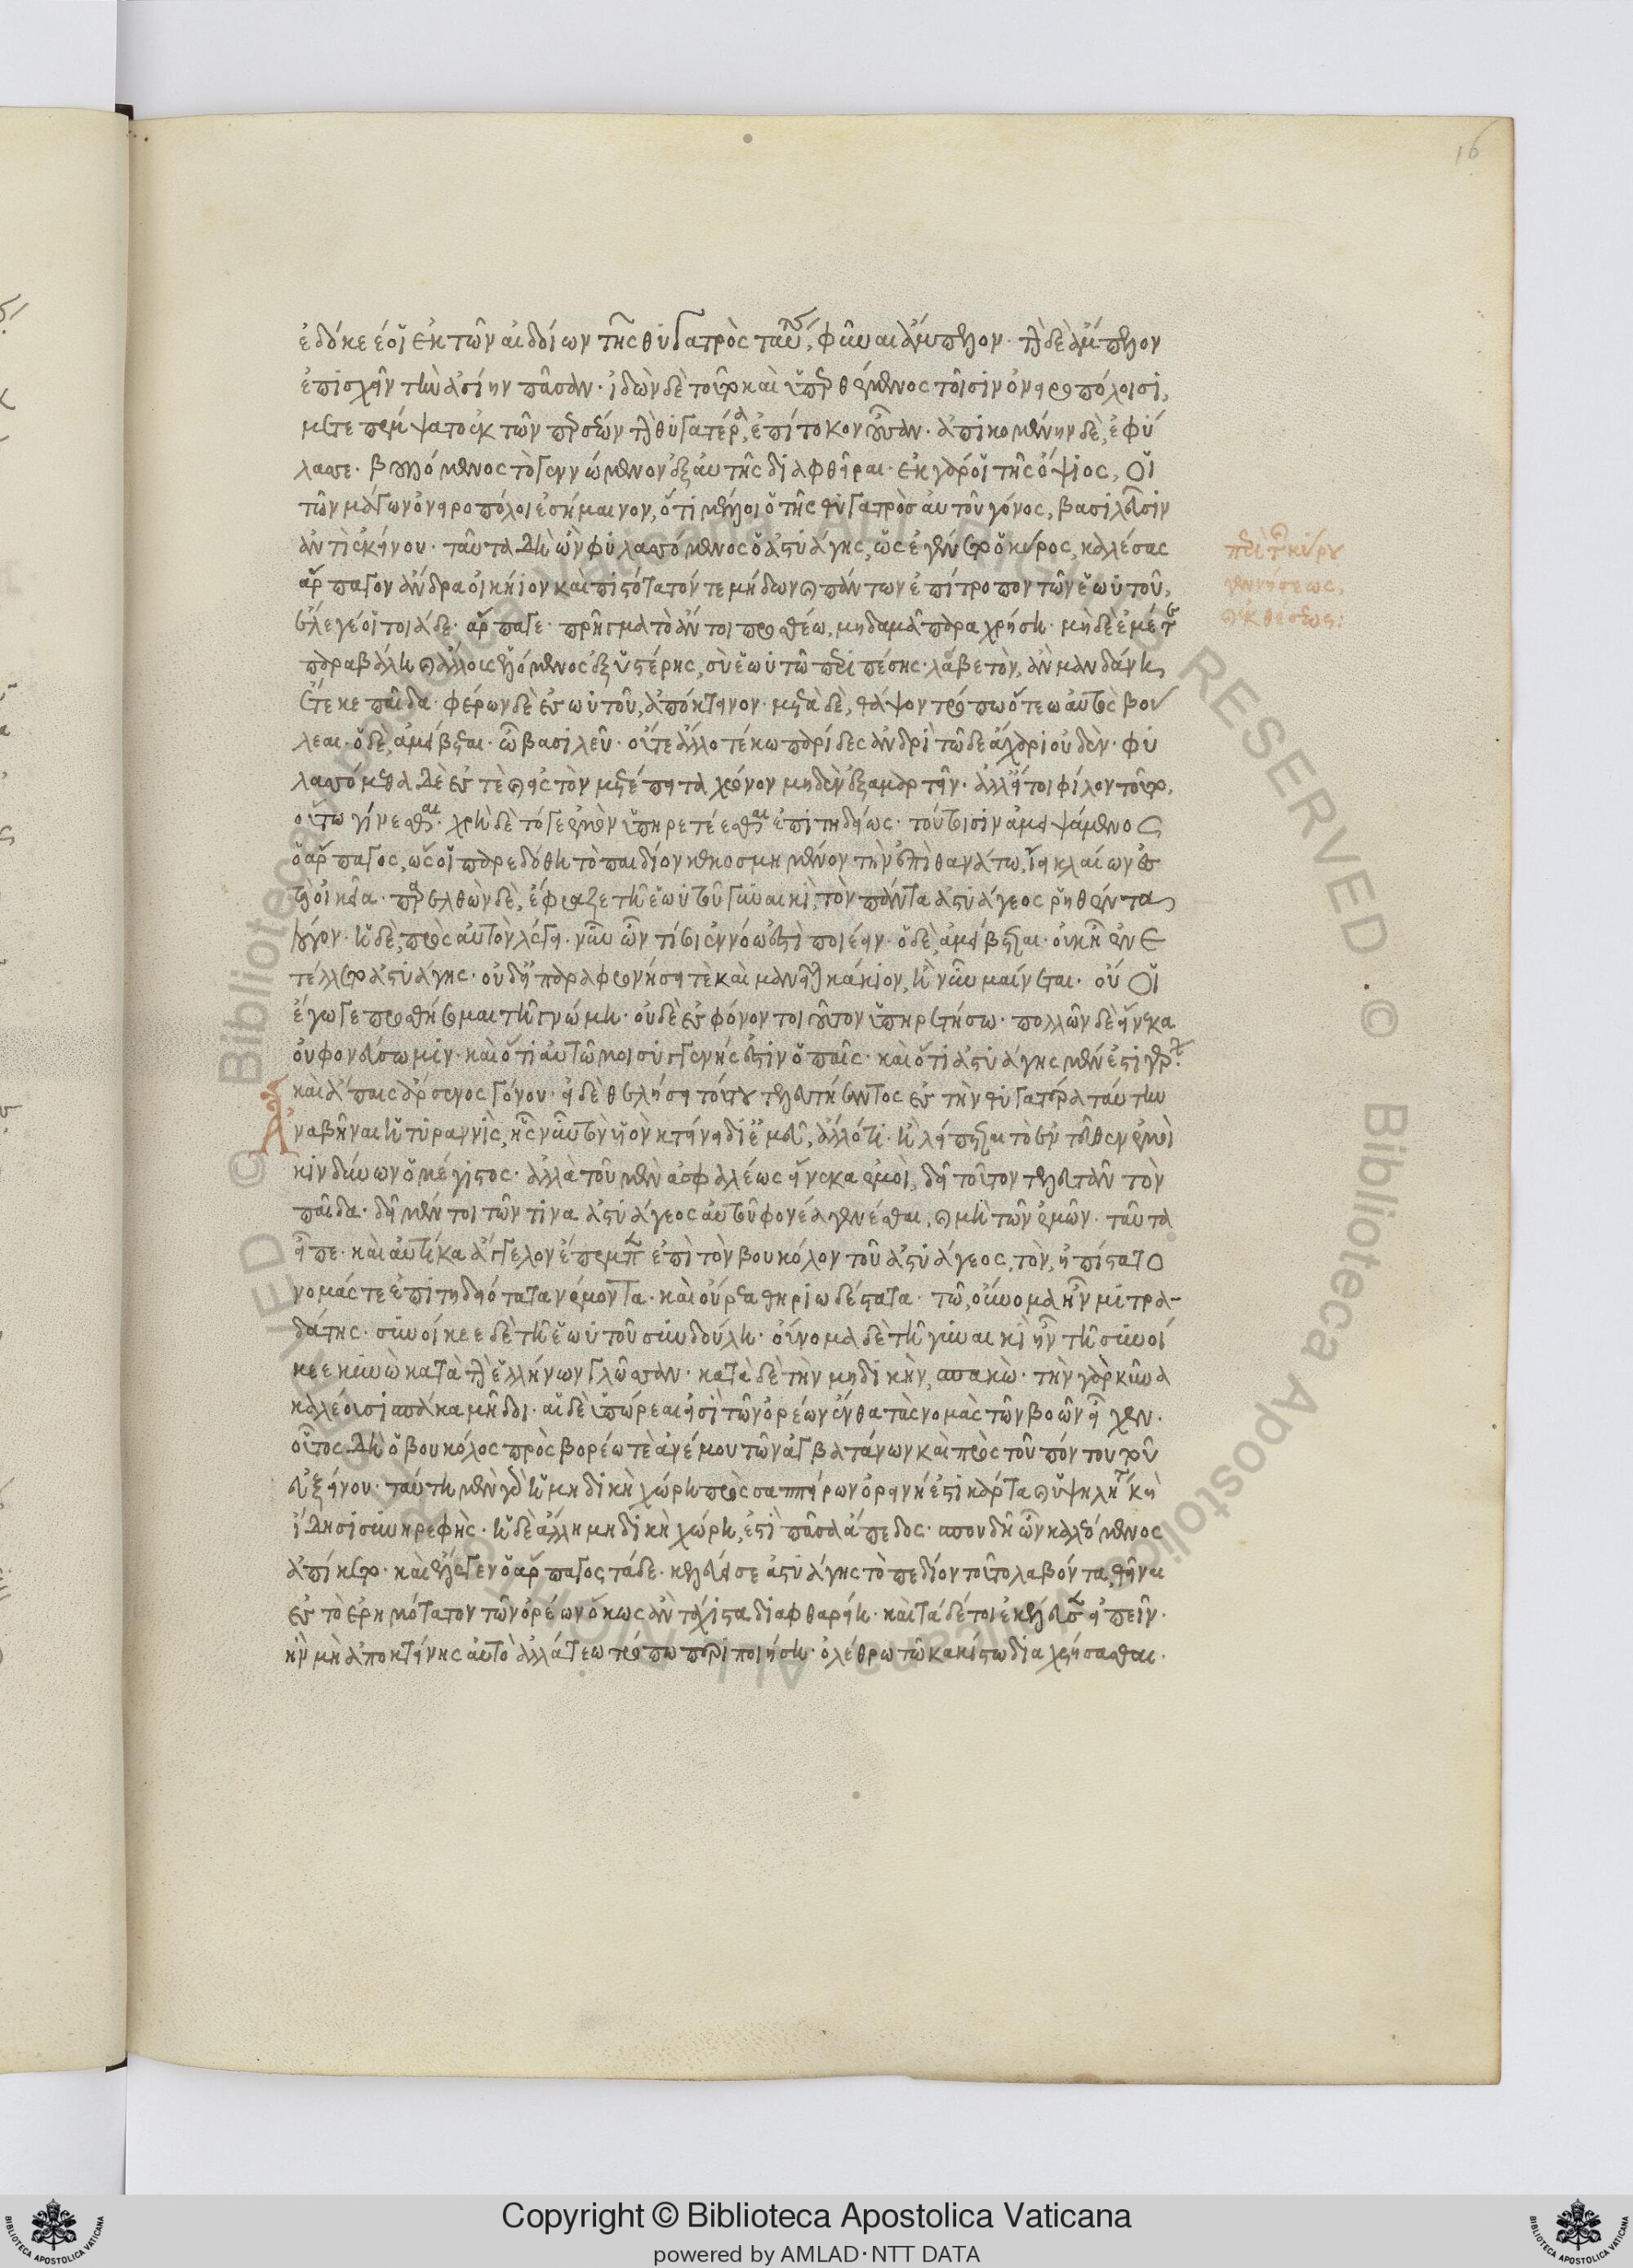 16
ἐδόκεέ οἱ ἐκ τῶν αἰδοίων τῆς θυγατρὸς ταύτης, φῦναι ἄμπελον· τὴν δὲ ἄμπελον
ἐπισχεῖν τὴν ἀσίην πᾶσαν· ἰδὼν δὲ τοῦτο καὶ ὑπερθέμενος τοῖσιν ὀνειροπόλοισι,
μετεπέμψατο ἐκ τῶν περσέων τὴν θυγατέρα, ἐπίτοκον ἐοῦσαν· ἀπικομένην δὲ, ἐφύ
λασσε· βουλόμενος τὸ γεννώμενον ἐξ αὐτῆς διαφθεῖραι· ἐκ γάρ οἱ τῆς ὄψιος, οἱ
τῶν μάγων ὀνειροπόλοι ἐσήμαινον, ὅτι μέλλοι ὁ τῆς θυγατρὸς αὐτοῦ γόνος, βασιλεύσειν
ἀντὶ ἐκείνου· ταῦτα δὴ ὦν φυλασσόμενος ὁ ἀστυάγης, ὡς ἐγένετο ὁ κῦρος, καλέσας
ἅρπαγον ἄνδρα οἰκήιον καὶ πιστότατόν τε μήδων καὶ πάντων ἐπίτροπον τῶν ἑωυτοῦ,
ἔλεγέ οἱ τοιάδε· ἅρπαγε· πρῆγμα τὸ ἄν τοι προσθέω, μηδαμὰ παραχρήσῃ· μηδὲ ἐμέ τε
παραβάλῃ καὶ ἄλλους ἑλόμενος ἐξ ὑστέρης, σὺ ἑωυτῷ περιπέσῃς· λάβε τὸν, ἂν μανδάνη
ἔτεκε παῖδα· φέρων δὲ ἐς ἑωυτοῦ, ἀπόκτεινον· μετὰ δὲ, θάψον τρόπῳ ὅτεῳ αὐτὸς βού
λεαι· ὁ δὲ, ἀμείβεται· ὦ βασιλεῦ· οὔτε ἄλλοτέ κω παρίδες ἀνδρὶ τῷδε ἄχαρι οὐδὲν· φυ
λασσόμεθα δὲ ἐς τὲ καὶ εἰς τὸν μετέπειτα χρόνον μηδὲν ἐξαμαρτεῖν· ἀλλ' εἴ τοι φίλον τοῦτο,
οὕτω γίνεσθαι· χρὴ δὲ τό γε ἐμὸν ὑπηρετέεσθαι ἐπιτηδείως· τούτοισιν ἀμειψάμενος
ὁ ἅρπαγος, ὥς οἱ παρεδόθη τὸ παιδίον κεκοσμημένον τὴν ἐπὶ θανάτῳ, ἤιε κλαίων ἐς
τὰ οἰκία· παρελθὼν δὲ, ἔφραζε τῇ ἑωυτοῦ γυναικὶ, τὸν πάντα ἀστυάγεος ῥηθέντα
λόγον· ἡ δὲ, πρὸς αὐτὸν λέγει· νῦν ὦν τί σοι ἐν νόῳ ἐστὶ ποιέειν· ὁ δὲ, ἀμείβεται· οὐκ ᾗ ἐνε
τέλλετο ἀστυάγης· οὐδ' εἰ παραφρονήσει τὲ καὶ μανεῖται κάκιον, ἢ νῦν μαίνεται· οὔ οἱ
ἔγωγε προσθήσομαι τῇ γνώμῃ· οὐδὲ ἐς φόνον τοιοῦτον ὑπηρετήσω· πολλῶν δὲ εἵνεκα
οὐ φονεύσω μιν· καὶ ὅτι αὐτῷ μοι συγγενής ἐστιν ὁ παῖς· καὶ ὅτι ἀστυάγης μέν ἐστι γέρων
καὶ ἄπαις ἄρσενος γόνου· εἰ δὲ θελήσει τούτου τελευτήσαντος ἐς τὴν θυγατέρα ταύτην
ἀναβῆναι ἡ τυραννὶς, ἧς νῦν τὸν υἱὸν κτείνει δι' ἐμεῦ, ἄλλό τι· ἢ λείπεται τὸ ἐντεῦθεν ἐμοὶ
κινδύνων ὁ μέγιστος· ἀλλὰ τοῦ μὲν ἀσφαλέως εἵνεκα ἐμοὶ, δεῖ τοῦτον τελευτᾶν τὸν
παῖδα· δεῖ μέντοι τῶν τινα ἀστυάγεος αὐτοῦ φονέα γενέσθαι, καὶ μὴ τῶν ἐμῶν· ταῦτα
εἶπε· καὶ αὐτίκα ἄγγελον ἔπεμπε ἐπὶ τὸν βουκόλον τοῦ ἀστυάγεος, τὸν, ἠπίστατο
νομάς τε ἐπιτηδειότατα νέμοντα· καὶ οὔρεα θηριωδέστατα· τῷ, οὔνομα ἦν μιτρα-
δάτης· συνοίκεε δὲ τῇ ἑωυτοῦ συνδούλῃ· οὔνομα δὲ τῇ γυναικὶ ἦν τῇ συνοί
κεε κυνὼ κατὰ τὴν ἑλλήνων γλῶσσαν· κατὰ δὲ τὴν μηδικὴν, σπακώ· τὴν γὰρ κύνα
καλέουσι σπάκα μῆδοι· αἱ δὲ ὑπώρεαι εἰσὶ τῶν ὀρέων ἔνθα τὰς νομὰς τῶν βοῶν εἶχεν·
οὗτος δὴ ὁ βουκόλος πρὸς βορέω τὲ ἀνέμου τῶν ἀγβατάνων καὶ πρὸς τοῦ πόντου τοῦ
εὐξείνου· ταύτῃ μὲν γὰρ ἡ μηδικὴ χώρη πρὸς σαππείρων ὀρεινή ἐστι κάρτα καὶ ὑψηλή τε καὶ
ἴδησι συνηρεφής· ἡ δὲ ἄλλη μηδικὴ χώρη, ἐστὶ πᾶσα ἄπεδος· σπουδῇ ὦν καλεόμενος
ἀπίκετο· καὶ ἔλεγεν ὁ ἅρπαγος τάδε· κελεύει σε ἀστυάγης τὸ πεδίον τοῦτο λαβόντα, θεῖναι
ἐς τὸ ἐρημότατον τῶν ὀρέων ὅκως ἂν τάχιστα διαφθαρείη· καὶ τάδέ τοι ἐκέλευσε εἰπεῖν·
ἢν μὴ ἀποκτείνῃς αὐτὸ ἀλλά τεῳ τρόπῳ περιποιήσῃ· ὀλέθρῳ τῷ κακίστῳ διαχρήσασθαι·
περὶ τῆς κύρου
γεννήσεως,
καὶ ἐκθέσεως:
Copyright © Biblioteca Apostolica Vaticana
powered by AMLAD·NTT DATA